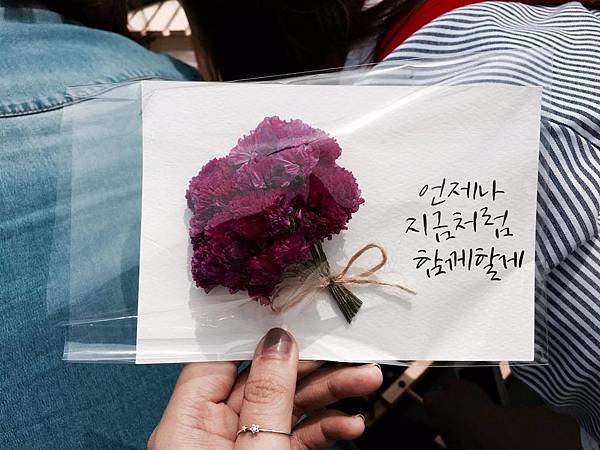 언제나
지금처럼
함께할게